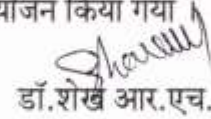 योजन किया गया
डॉ.शेख आर.एच.